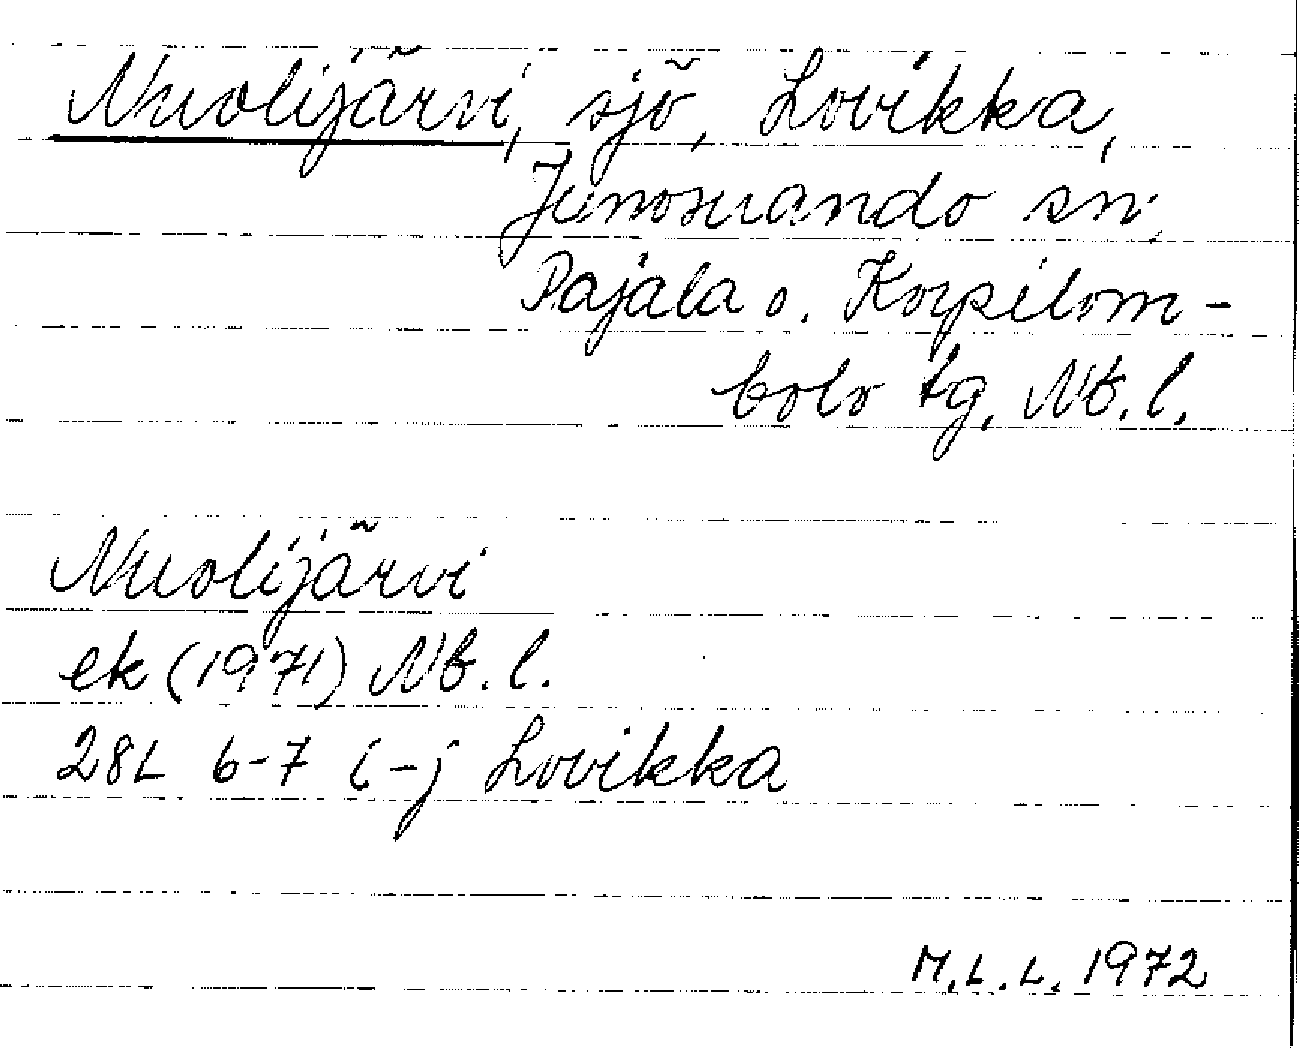 Nuolijärvi, sjö, Lovikka,
Junosuando sn,
Pajala o. Korpilom-
bolo tg, Nb. l.
Nuolijärvi
ek (1971) Nb. l.
28L 6-7 i-j Lovikka
M.L.L. 1972